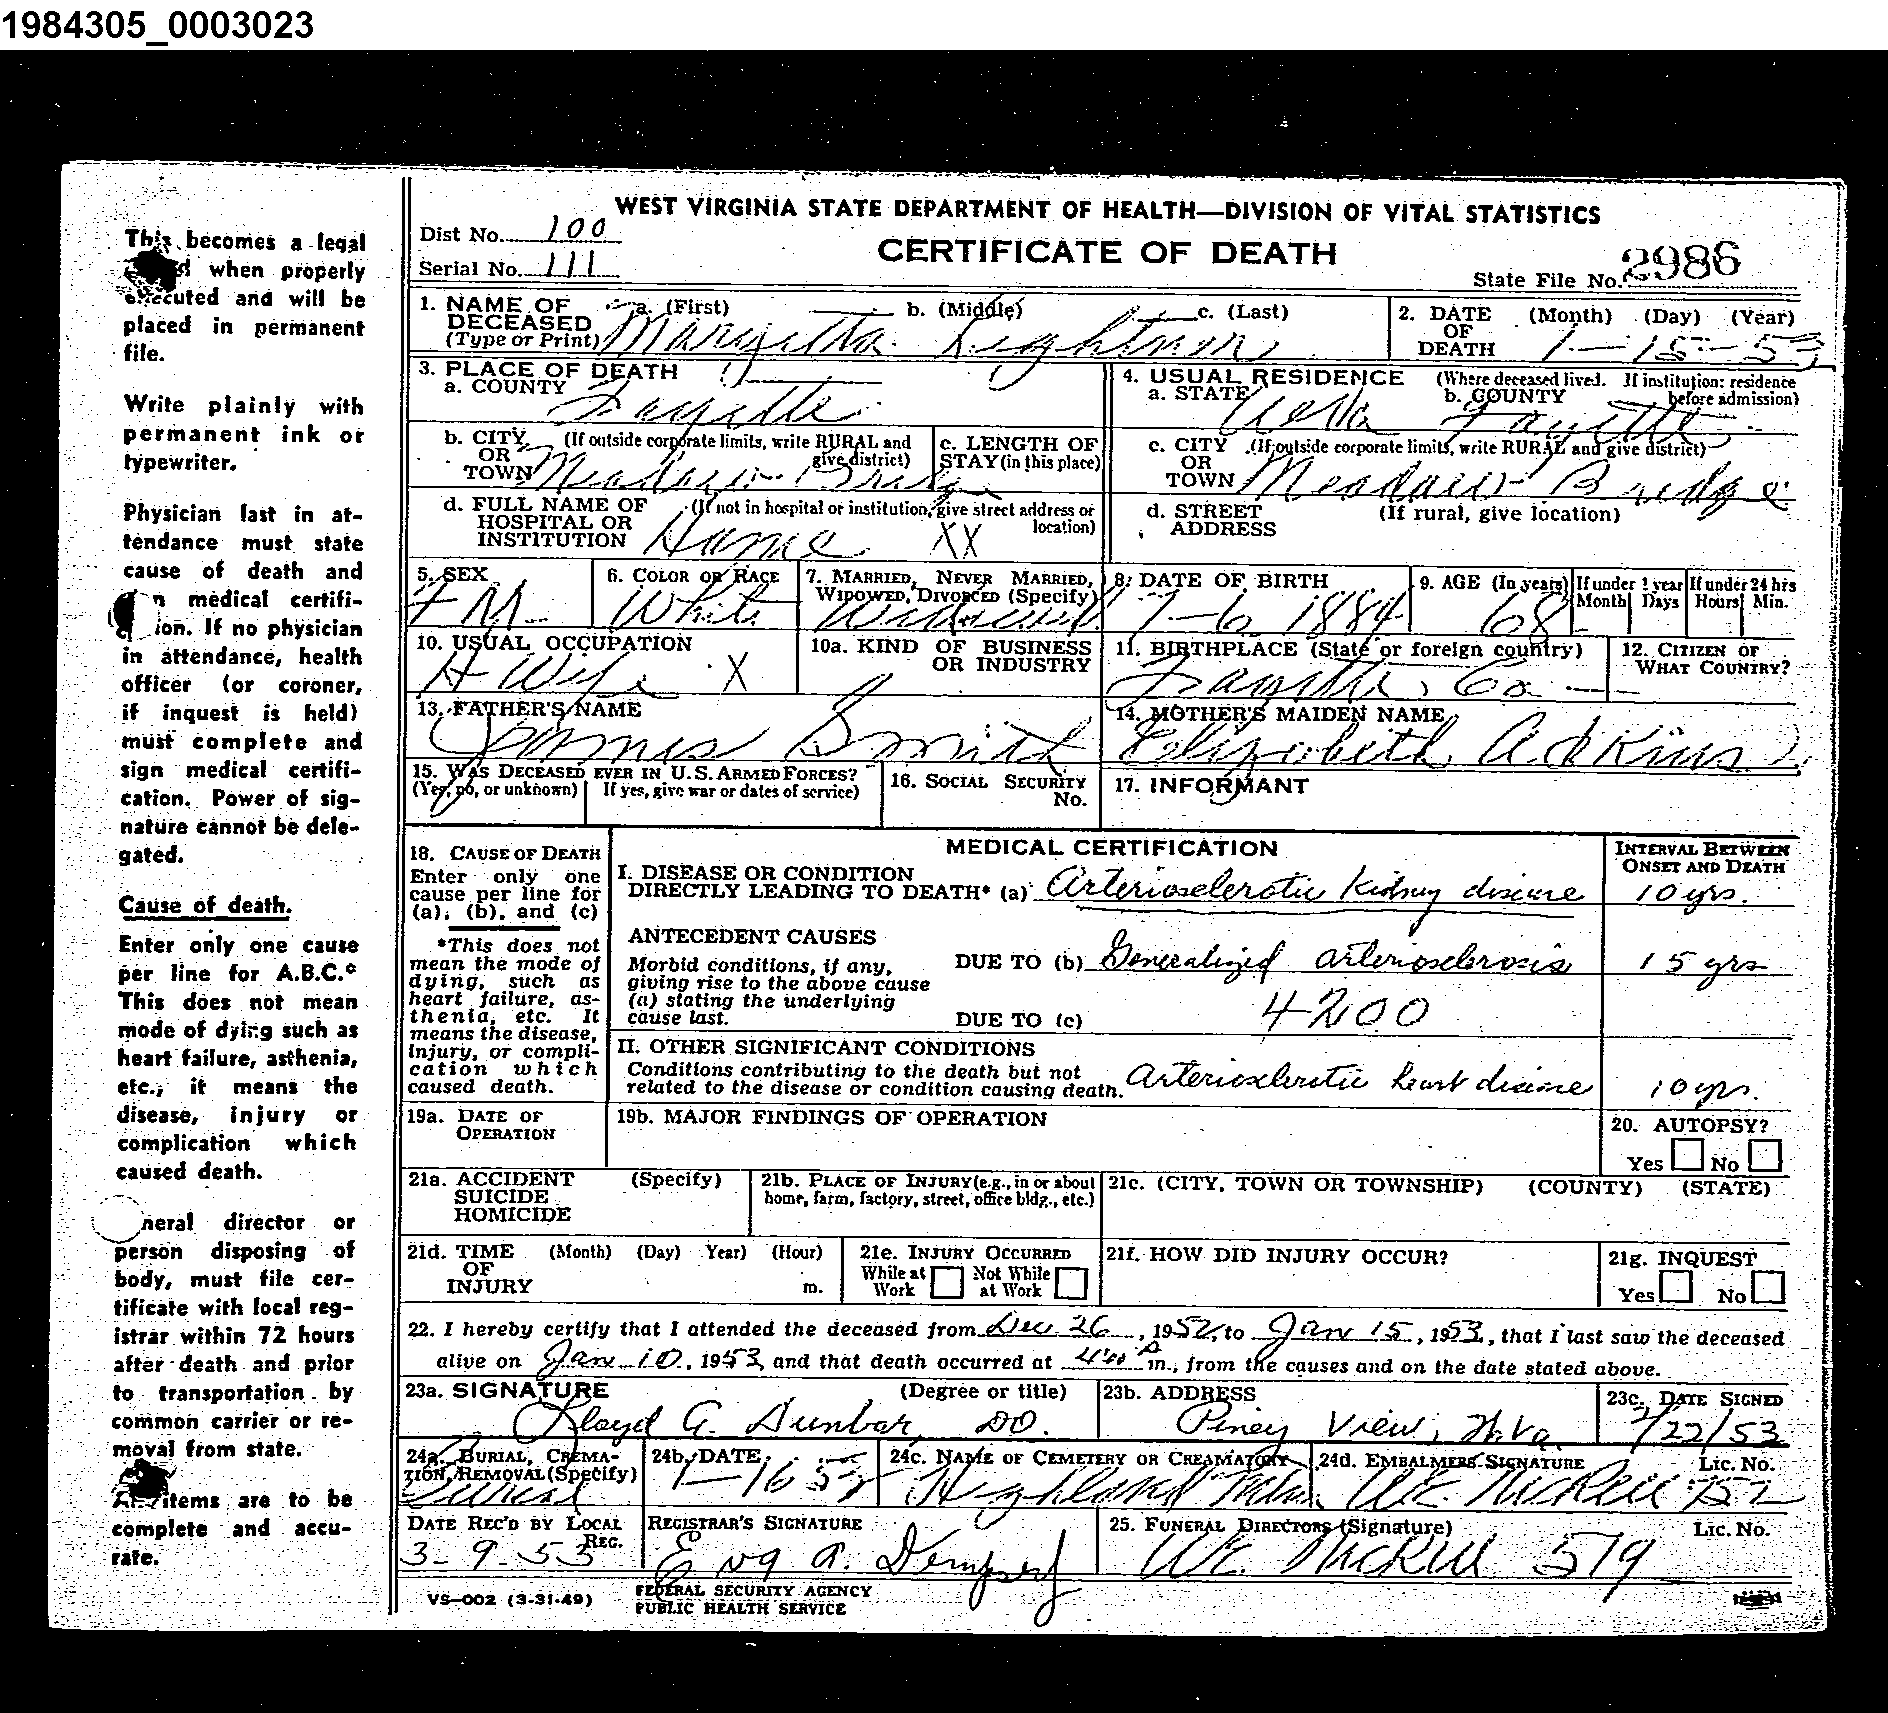 1984305_0003023
WEST VIRGINIA STATE DEPARTMENT OF HEALTH—DIVISION OF VITAL STATISTICS
CERTIFICATE OF DEATH
Dist No. 100
Serial No. 111
State File No. 2986
This becomes a legal
when properly
executed and will be
placed in permanent
file.
Write plainly with
permanent ink or
typewriter.
Physician last in at-
tendance must state
cause of death and
medical certifi-
ion. If no physician
in attendance, health
officer (or coroner,
if inquest is held)
must complete and
sign medical certifi-
cation. Power of sig-
nature cannot be dele-
gated.
Cause of death.
Enter only one cause
per line for A.B.C.*
This does not mean
mode of dying such as
heart failure, asthenia,
etc., it means the
disease, injury or
complication which
caused death.
neral director or
person disposing of
body, must file cer-
tificate with local reg-
istrar within 72 hours
after death and prior
to transportation by
common carrier or re-
moval from state.
items are to be
complete and accu-
rate.
1. NAME OF DECEASED (Type or Print) a. (First) b. (Middle) c. (Last)
2. DATE OF DEATH (Month) (Day) (Year) 1-15-53
3. PLACE OF DEATH
a. COUNTY Fayette
b. CITY OR TOWN (If outside corporate limits, write RURAL and give district) Meadow Bridge
c. LENGTH OF STAY (in this place)
d. FULL NAME OF HOSPITAL OR INSTITUTION (If not in hospital or institution, give street address or location) Home XX
4. USUAL RESIDENCE (Where deceased lived. If institution: residence before admission)
a. STATE b. COUNTY Fayette
c. CITY OR TOWN (If outside corporate limits, write RURAL and give district) Meadow Bridge
d. STREET ADDRESS (If rural, give location)
5. SEX
6. COLOR OR RACE White
7. MARRIED, NEVER MARRIED, WIDOWED, DIVORCED (Specify) Widowed
8. DATE OF BIRTH 7-6 1884
9. AGE (In years) 68
If under 1 year Month Days
If under 24 hrs Hours Min.
10. USUAL OCCUPATION H Wife X
10a. KIND OF BUSINESS OR INDUSTRY
11. BIRTHPLACE (State or foreign country) Fayette, Co
12. CITIZEN OF WHAT COUNTRY?
13. FATHER'S NAME James Smith
14. MOTHER'S MAIDEN NAME Elizabeth Adkins
15. WAS DECEASED EVER IN U. S. ARMED FORCES?
(Yes, no, or unknown) If yes, give war or dates of service)
16. SOCIAL SECURITY No.
17. INFORMANT
18. CAUSE OF DEATH
Enter only one
cause per line for
(a), (b), and (c)
*This does not
mean the mode of
dying, such as
heart failure, as-
thenia, etc. It
means the disease,
injury, or compli-
cation which
caused death.
MEDICAL CERTIFICATION
INTERVAL BETWEEN ONSET AND DEATH
I. DISEASE OR CONDITION
DIRECTLY LEADING TO DEATH* (a) Arteriosclerotic kidney disease 10 yrs.
ANTECEDENT CAUSES
Morbid conditions, if any,
giving rise to the above cause
(a) stating the underlying
cause last.
DUE TO (b) Generalized arteriosclerosis 15 yrs
4200
DUE TO (c)
II. OTHER SIGNIFICANT CONDITIONS
Conditions contributing to the death but not
related to the disease or condition causing death. Arteriosclerotic heart disease 10 yrs.
19a. DATE OF OPERATION
19b. MAJOR FINDINGS OF OPERATION
20. AUTOPSY?
Yes No
21a. ACCIDENT SUICIDE HOMICIDE (Specify)
21b. PLACE OF INJURY (e.g., in or about home, farm, factory, street, office bldg., etc.)
21c. (CITY, TOWN OR TOWNSHIP) (COUNTY) (STATE)
21d. TIME OF INJURY (Month) (Day) Year) (Hour) m.
21e. INJURY OCCURRED
While at Work Not While at Work
21f. HOW DID INJURY OCCUR?
21g. INQUEST
Yes No
22. I hereby certify that I attended the deceased from Dec 26, 1952, to Jan 15, 1953, that I last saw the deceased
alive on Jan 10, 1953, and that death occurred at m., from the causes and on the date stated above.
23a. SIGNATURE (Degree or title) Lloyd G. Dunbar, DO.
23b. ADDRESS Piney View, W.Va.
23c. DATE SIGNED /22/53
24a. BURIAL, CREMA-TION, REMOVAL (Specify) Burial
24b. DATE
24c. NAME OF CEMETERY OR CREAMATORY Highland
24d. EMBALMERS SIGNATURE Lic. No.
DATE REC'D BY LOCAL REG. 3-9-53
REGISTRAR'S SIGNATURE Eva A. Dempsey
25. FUNERAL DIRECTORS (Signature) Lic. No. 579
VS-002 (3-31-49)
FEDERAL SECURITY AGENCY
PUBLIC HEALTH SERVICE